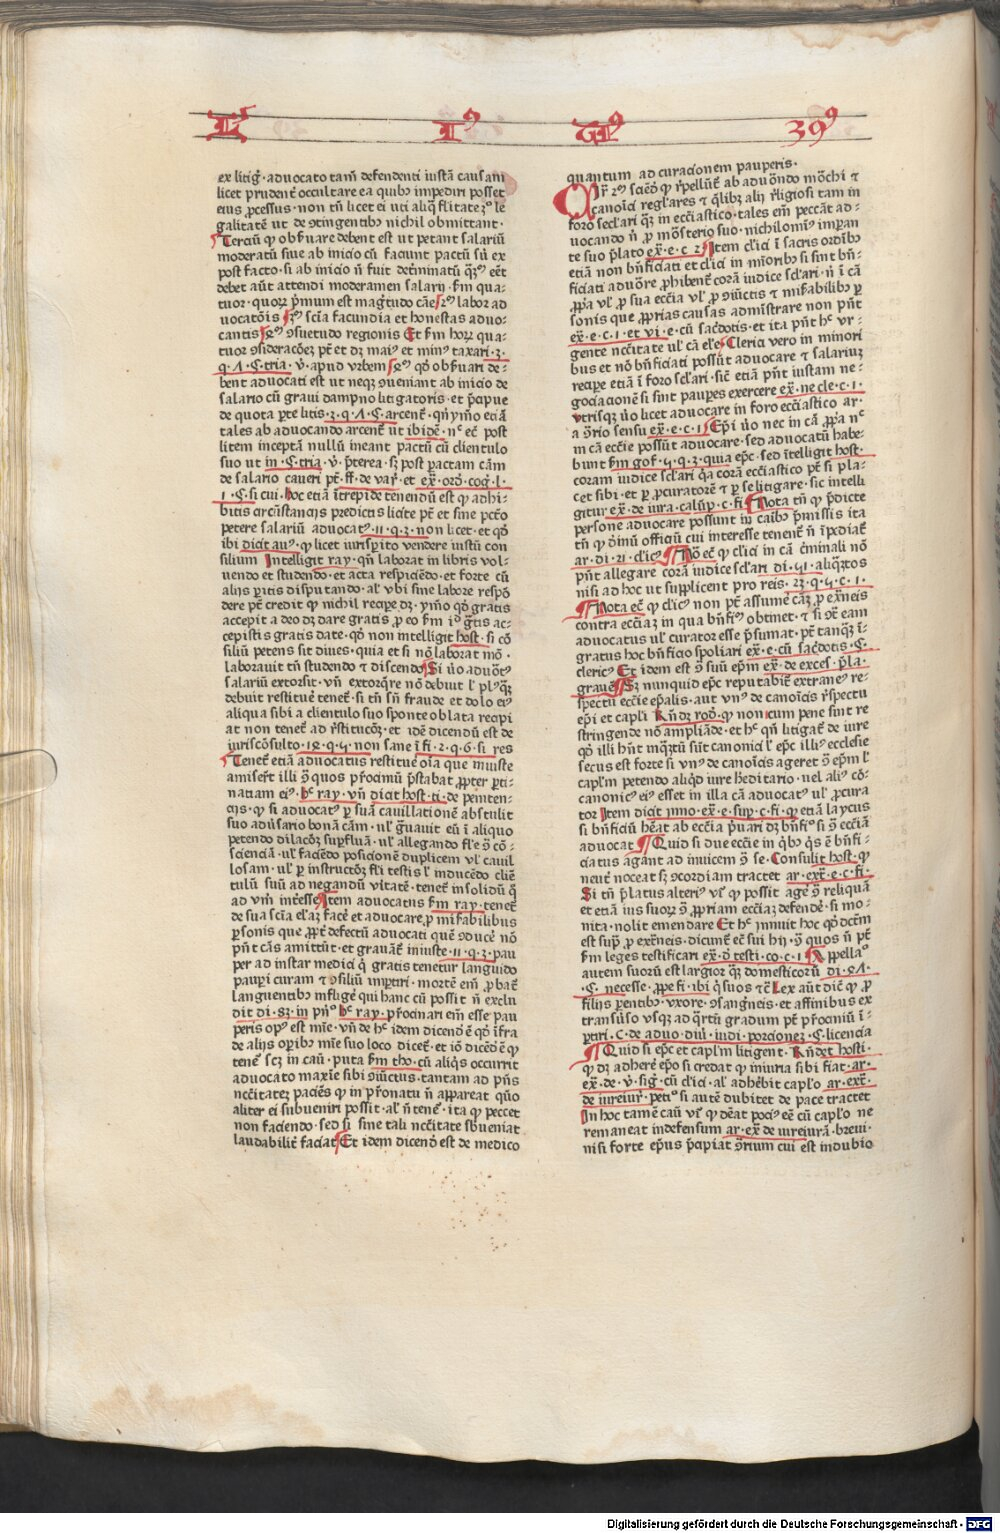 L I⁹ TI⁹ 39⁹
ex litig̃· aduocato tam̃ defendenti iustã causam
licet prudent᷑ occultare ea quibꝫ impediri posset
eius ꝓcessus· non tñ licet ei uti aliq̃ flitate ꝫ⁹ le
galitatẽ ut de ɔtingentibꝫ nichil obmittant·
Terciũ ꝙ obs̃uare debent est ut petant salariũ
moderatũ siue ab inicio cũ faciunt pactũ sũ ex
post facto· si ab inicio ñ fuit det᷑minatũ
debet aũt attendi moderamen salarij· s̃m qua⸗
tuor· quorꝝ p̃mum est mag̃tudo cãe labor ad
uocatõis scĩa facundia et honestas aduo⸗
cantis ɔsuetudo regionis Et s̃m horꝝ qua⸗
tuor ɔsideracõeꝫ pt̃ et dꝫ mai⁹ et min⁹ taxari· 3·
q̃· ⁊· C· tria· v̓· apud vrbem qd̓ obs̃uari de⸗
bent aduocati est ut neqꝫ ɔueniant ab inicio de
salario cũ graui dampno litigatoris· et p̃cipue
de quota pte litis· 3· q· ⁊· C· arcent᷑· qñymo eciã
tales ab aduocando arcent᷑ ut ibidẽ· nᶜ eĉ post
litem inceptã nullũ ineant pactũ cũ clientulo
suo ut in· C· tria· v̓· p̃terea· sꝫ post peractam cãm
de salario caueri pt̃· ff· de var̃· et ex̃· orõ· cog̃· l·
1· C· si cui· hoc etiã ĩtrepide tenendũ est ꝙ adhi⸗
bitis circũstancijs predictis licite pt̃ et sine pctõ
petere salariũ aduocat⁹· 11· q· 3· non licet· et qd̓
ibi dicit au⁹· ꝙ licet iurisp̃ito vendere iustũ con
silium Intelligit ray· qñ laborat in libris vol⸗
uendo et studendo· et acta respiciẽdo· et forte cũ
alijs p̃itis disputando· al̓ vbi sine labore respõ
dere pt̃ credit ꝙ nichil recipe dꝫ· ymo qd̓ gratis
accepit a deo dꝫ dare gratis ꝓ eo s̃m id g̃tis ac⸗
cepistis gratis date· qd̓ non intelligit host· si cõ
siliũ petens sit diues· quia et si nõ laborat mõ·
laborauit tñ studendo ⁊ discendo Si ũo aduoc̃⁹
salariũ extorsit· vñ extorq̃re nõ debuit
debuit restituẽ tenet᷑· si tñ sñ fraude et dolo ei⁹
aliqua sibi a clientulo suo sponte oblata recipi
at non tenet᷑ ad r̃stitucõꝫ· et idẽ dicendũ est de
iuriscõsulto· 14· q· 5· non sane ĩ fi· 2· q· 6· si res
Tenet᷑ etiã aduocatus restituẽ oĩa que iniuste
amiserт illi ɔ̃ quos p̃rocinũ p̃stabat ꝓpter p̃ti⸗
natiam ei⁹· hᶜ ray· vñ dicit host· ti· de peniten⸗
cijs· ꝙ si aduocat⁹ p̃ suã cauillationẽ abstulit
suo adu̓sario bonã cãm· ul̓ g̃uauit eũ ĩ aliquo
petendo dilacõꝫ sup̃fluã· ul̓ allegando fl̓e ɔ̃ cõ⸗
scienciã· ul̓ faciẽdo posicionẽ duplicem ul̓ cauil
losam· ul̓ p̃ instructõꝫ fl̓i testis l̓ inducẽdo cliẽ
tulũ suũ ad negandũ v̓itatẽ· tenet᷑ insolidũ q̃
ad vm̃ int̓esse Item aduocatus s̃m ray· tenet᷑
de sua scĩa el̓aꝫ facẽ et aduocare ꝓ mis̃abilibus
p̃sonis que ꝓpt̃ defectũ aduocati quẽ ɔducẽ nõ
pñt cãs amittũt· et grauãt᷑ iniuste· 11· q· 3· pau
per ad instar medici q̃ gratis tenetur languido
paup̃i curam ⁊ ɔsiliũ imp̃tiri· mortẽ em̃ ꝓbat᷑
languentibꝫ inflig̃e qui hanc cũ possit ñ exclu
dit di· 83· in pñ⁰ hᶜ ray· p̃rocinari em̃ esse pau
peris op⁹ est mĩe· vñ de hᶜ idem dicend̃ ẽ qd̓ ĩfra
de alijs op̃ibꝫ mĩe suo loco dicet᷑· et iõ dicẽd ẽ ꝙ
tenet᷑ scꝫ in caũ· puta s̃m tho· cũ aliq̃s occurrit
aduocato maxĩe sibi ɔiũctus· tantam ad p̃ns
ncc̃itateꝫ paciẽs ꝙ in p̃mptu ñ appareat q̃uo
aliter ei subueniri possit· al̓ ñ tenet᷑· ita ꝙ peccet
non faciendo· sed si sine tali ncc̃itate sb̃ueniat
laudabilit᷑ faciat Et idem dicend̃ est de medico
quantum ad curacionem pauperis·
ꝙ r̃pellunt᷑ ab aduõndo mõchi ⁊
canoĩci regl̃ares ⁊ q̃libꝫ alij r̃ligiosi tam in
foro secl̓ari q̃ in ecc̃iastico· tales em̃ peccãt ad⸗
uocando ñ ꝓ mõsterio suo· nichilomĩ⁹ imp̃an
te suo p̃lato ex̃· e· c· 2 Item cl̓ici ĩ sacris ordĩbꝫ
etiã non bñficiati et cl̓ici in mĩoribꝫ si sint bñ⸗
ficiati aduõre ꝓhibent᷑ corã iudice scl̓ari· ñ ĩ cã
ꝓp̃a ul̓ ꝓ sua ecc̃ia vl̓ ꝓ ɔiũctis ⁊ mis̃abilibꝫ p̃
sonis que ꝓprias causas admĩstrare non pñt
ex̃· e· c· 1· et vi· e· cũ sac̃dotis· et ita pñt hᶜ vr⸗
gente ncc̃itate ul̓ cã el̓e Clerici vero in minori
bus et nõ bñficiati possũt aduocare ⁊ salariuꝫ
recipe etiã ĩ foro scl̓ari· sic̃ etiã pñt iustam ne⸗
gociacionẽ si sint paup̃es exercere ex̃· ne cle· c· 1·
vtrisqꝫ ũo licet aduocare in foro ecc̃iastico ar·
a ɔ̃rio sensu ex̃· e· c· 1 Ep̃i ũo nec in cã ꝓp̃a nᶜ
in cã ecc̃ie possũt aduocare· sed aduocatũ habe⸗
bunt s̃m gof· 5· q· 3· quia ep̃c· sed ĩtelligit host·
coram iudice scl̓ari q̃a corã ecc̃iastico pt̃ si pla⸗
cet sibi· et p̃ ꝓcuratorẽ ⁊ p̃ se litigare· sic intelli
gitur ex̃· de iura· calũp̃· c· fi Nota tñ ꝙ p̃dicte
persone aduocare possunt in caibꝫ p̃missis ita
tñ ꝙ d̓inũ officiũ cui interesse tenent᷑ ñ ĩpediat᷑
ar· di· 21· cl̓ic⁹ Nõ eĉ ꝙ cl̓ici in cã c̃minali nõ
pñt allegare corã iudice scl̓ari di· 51· aliq̃ntos
nisi ad hoc ut supplicent pro reis· 23· q· 5· c· 1·
Nota eĉ ꝙ cl̓ic⁹ non pt̃ assumẽ cãꝫ ꝓ ex̃neis
contra ecc̃iaꝫ in qua bñfi⁰ obtinet· ⁊ si ɔt̃ eam
aduocatus ul̓ curator esse p̃sumat· pt̃ tanq̃ ĩ⸗
gratus hoc bñficio spoliari ex̃· e· cũ sac̃dotis· C·
cleric⁹ Et idem est ɔ̃ suũ ep̃m ex̃· de exces· p̃la·
grauẽ Sꝫ nunquid ep̃c reputabit᷑ extrane⁹ re⸗
spectu ecc̃ie ep̃alis· aut vn⁹ de canoĩcis r̃spectu
ep̃i et capl̓i Rñdꝫ rod̓· ꝙ non cum pene sint re
stringende nõ ampliãde· et hᶜ qñ litigat᷑ de iure
qd̓ illi hñt inq̃rtũ sũt canonici l̓ ep̃c illi⁹ ecclesie
secus est forte si vn⁹ de canoĩcis ageret ɔ̃ ep̃m l̓
capl̓m petendo aliq̃d iure heditario· uel ali⁹ cõ⸗
canonic⁹ ei⁹ esset in illa cã aduocat⁹ ul̓ ꝓcura
toꝛ Item dicit ĩnno· ex̃· e· sup̃· c· fi· ꝙ etiã laycus
si bñficiũ hẽat ab ecc̃ia p̃uari dꝫ bñfi⁰ si ɔ̃ ecc̃iã
aduocat Quid si due ecc̃ie in q̃bꝫ q̃s ẽ bñfi⸗
ciatus agant ad inuicem ɔ̃ se· Consulit host· ꝙ
neut᷑ noceat sꝫ ɔcordiam tractet ar· ex̃t· e· c· fi·
Si tñ p̃latus alteri⁹ ul̓ ꝙ possit agẽ ɔ̃ reliquã
et etiã ius suorꝝ ɔ̃ ꝓpriam ecc̃iaꝫ defendẽ· si mo⸗
nita· nolit emendare Et hᶜ ĩnuit hoc qd̓ dc̃m
est sup̃· ꝓ ex̃neis· dicunt᷑ eĉ sui hij· ɔ̃ quos ñ pt̃
s̃m leges testificari ex̃· d̓ testi· co· c· 1 Appella⁰
autem suorũ est largior q̃ꝫ domesticorũ di· 54·
· C· necesse· ꝓpe fi· ibi q̃ suos ⁊c̃ Lex aũt dic̃ ꝙ ꝓ
filijs p̃entibꝫ· vxore· ɔsang̃neis· et affinibus ex
transũso vsqꝫ ad q̃rtũ gradum pt̃ p̃rociniũ ĩ⸗
p̃tiri· C· de aduo· diũ· iudi· porcioneꝫ· C· licencia
Quid si ep̃c et capl̓m litigent· Rñdet hosti·
ꝙ dꝫ adherẽ ep̃o si credat ꝙ iniuria sibi fiat· ar·
ex̃· de· v̓· sig̃· cũ cl̓ici· al̓ adhẽbit capl̓o ar· ex̃t·
de iureiur· peti⁰ si autẽ dubitet de pace tractet
In hoc tamẽ caũ vl̓ ꝙ dẽat poci⁹ eẽ cũ capl̓o ne
remaneat indefensum ar· ex̃ de iureiurã· breui·
nisi forte ep̃us p̃cipiat ɔ̃rium cui est indubio
Digitalisierung gefördert durch die Deutsche Forschungsgemeinschaft - DFG